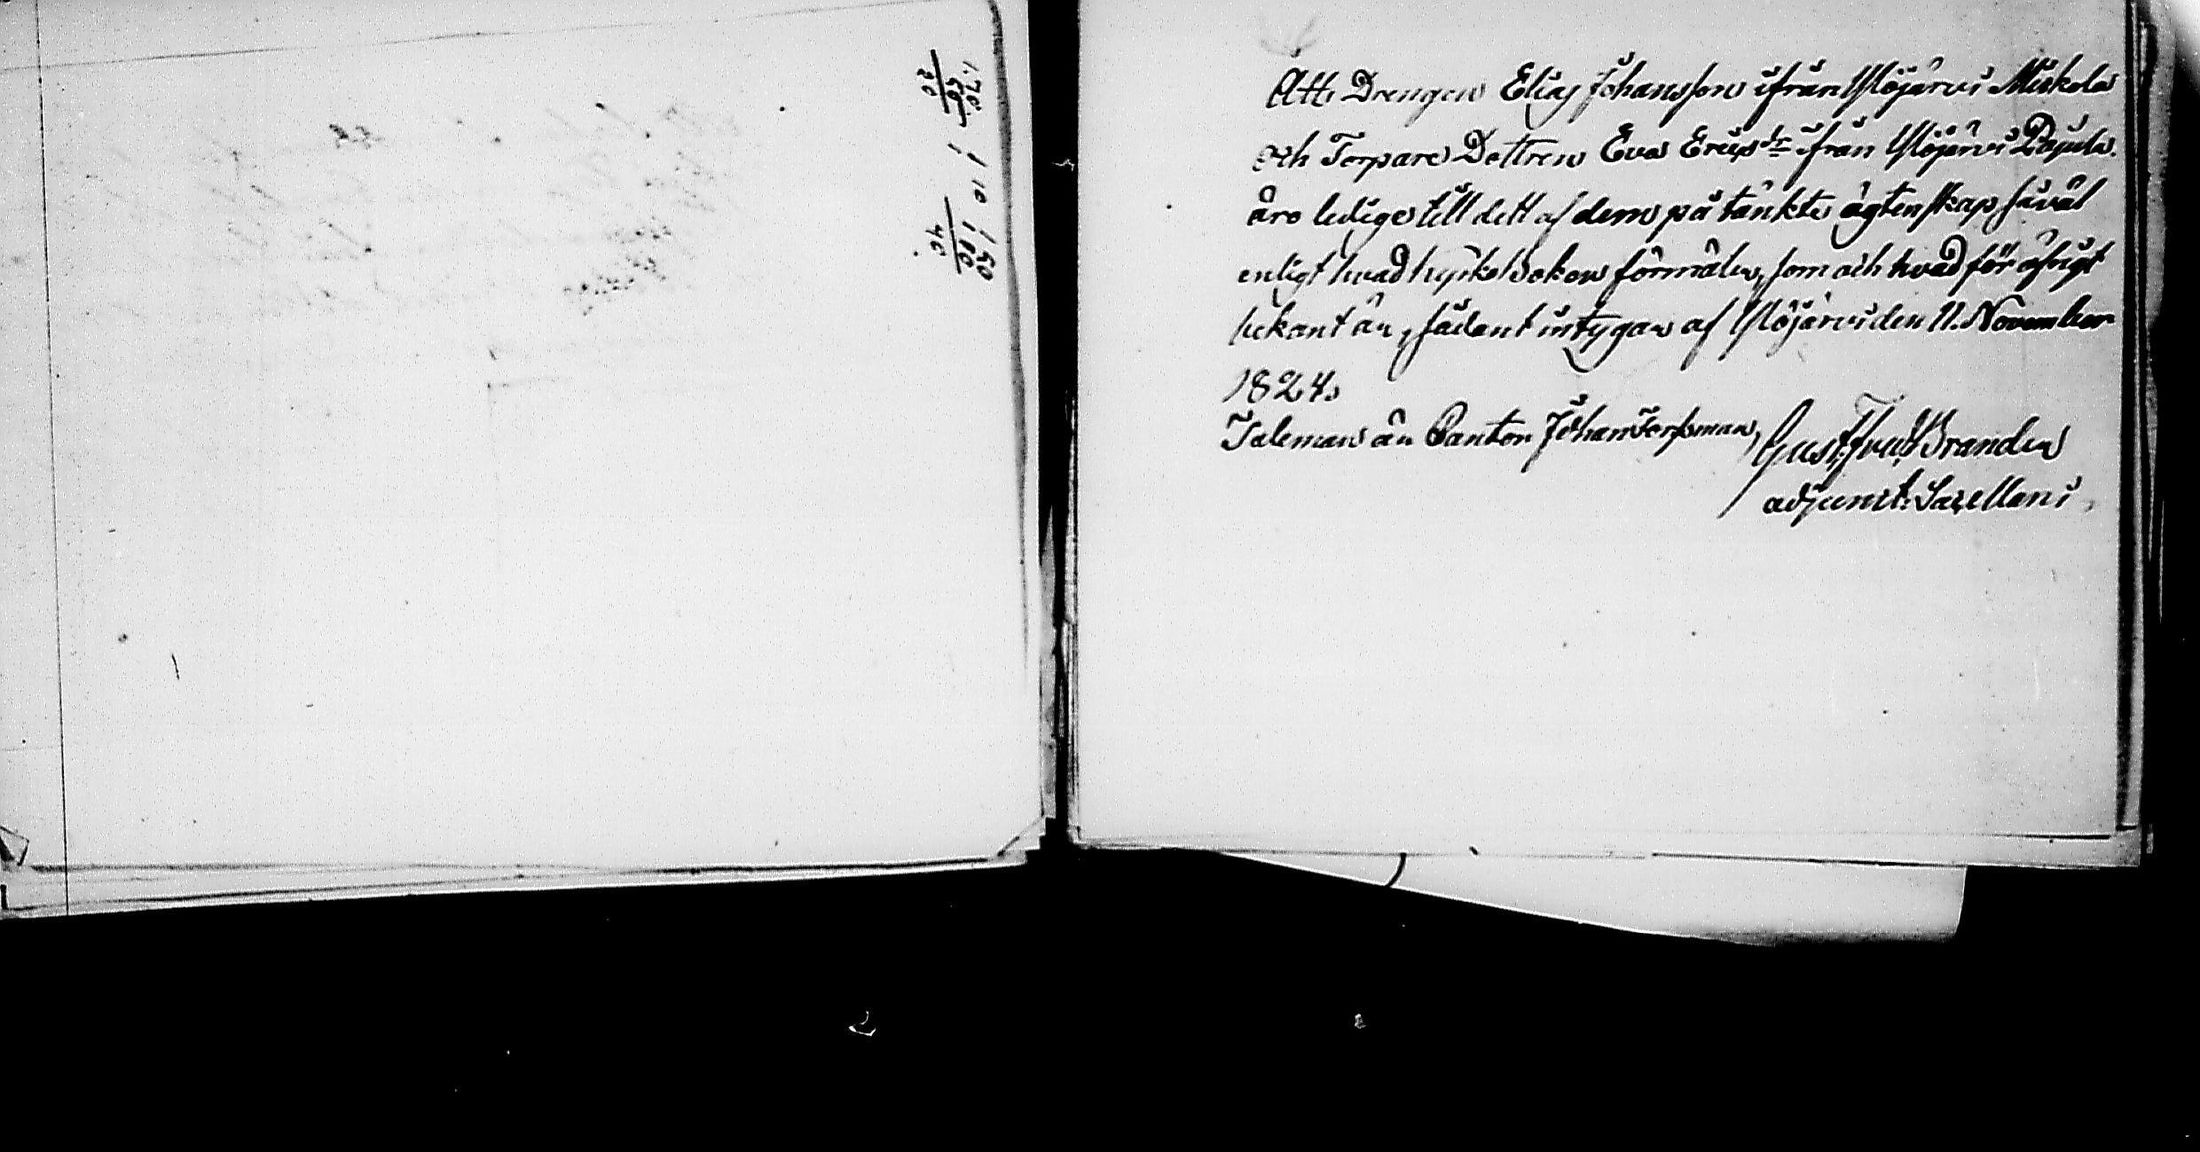 Att Drengen Elias Johansson ifrån Ylöjärvi Mickola
och Torpare Dottren Eva Ericsdr ifrån Ylöjärvi Pajula.
äro ledige till dett af dem påtänkte ägtenskap såväl
enligt hvad kyrkoboken förmäler, som och hvad för öfrigt
bekant är, sådant intygar af Ylöjärvi den 11. November
1824.
Taleman är Cantor Johan Forssman,
Gust: Fred: Brander
adjunct: Sacellani